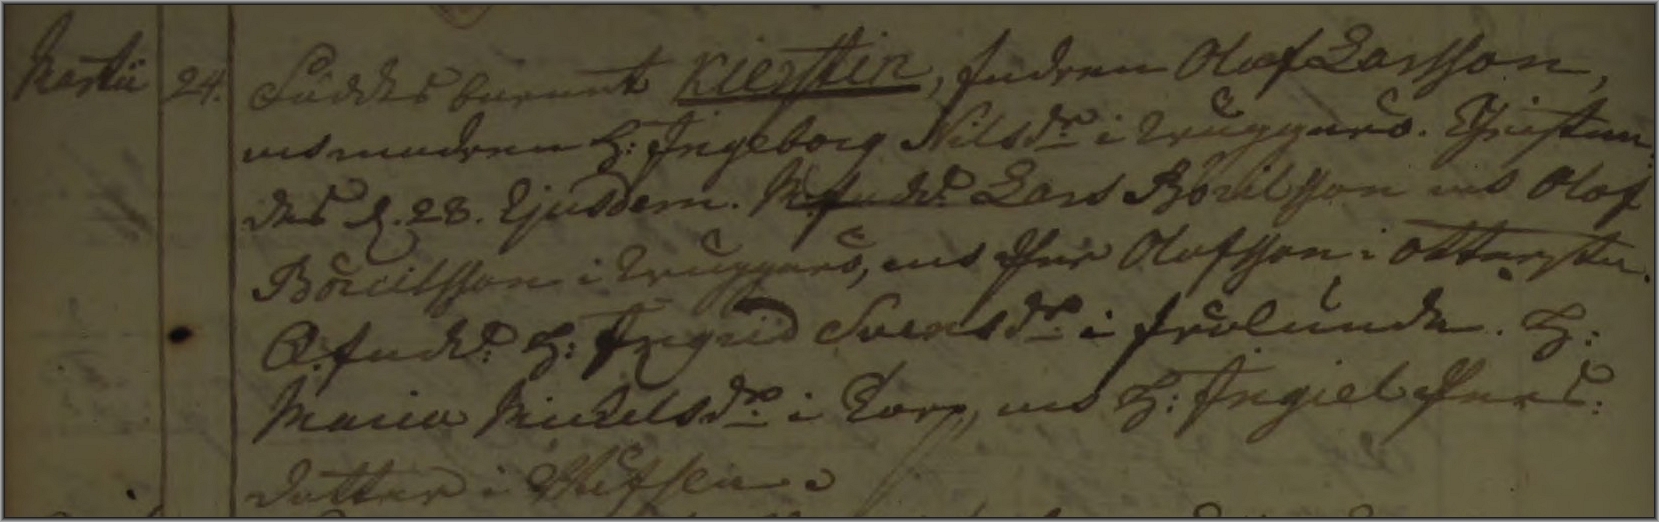 Martii 24. Föddes barnet Kierstin, fadren Olof Larsson,
och modren H: Ingeborg Nilsdr i Bryggarå. Christna-
des d. 28. Ejusdem. M.fadd: Lars Börilsson och Olof
Börcillsson i Bryggarå, och Per Olofsson i Ottersta.
Q.fadd: H: Ingrid Svensdr i Frölunda. H:
Maria Mickelsdr i Torp, och H: Ingiel Pers
dotter i